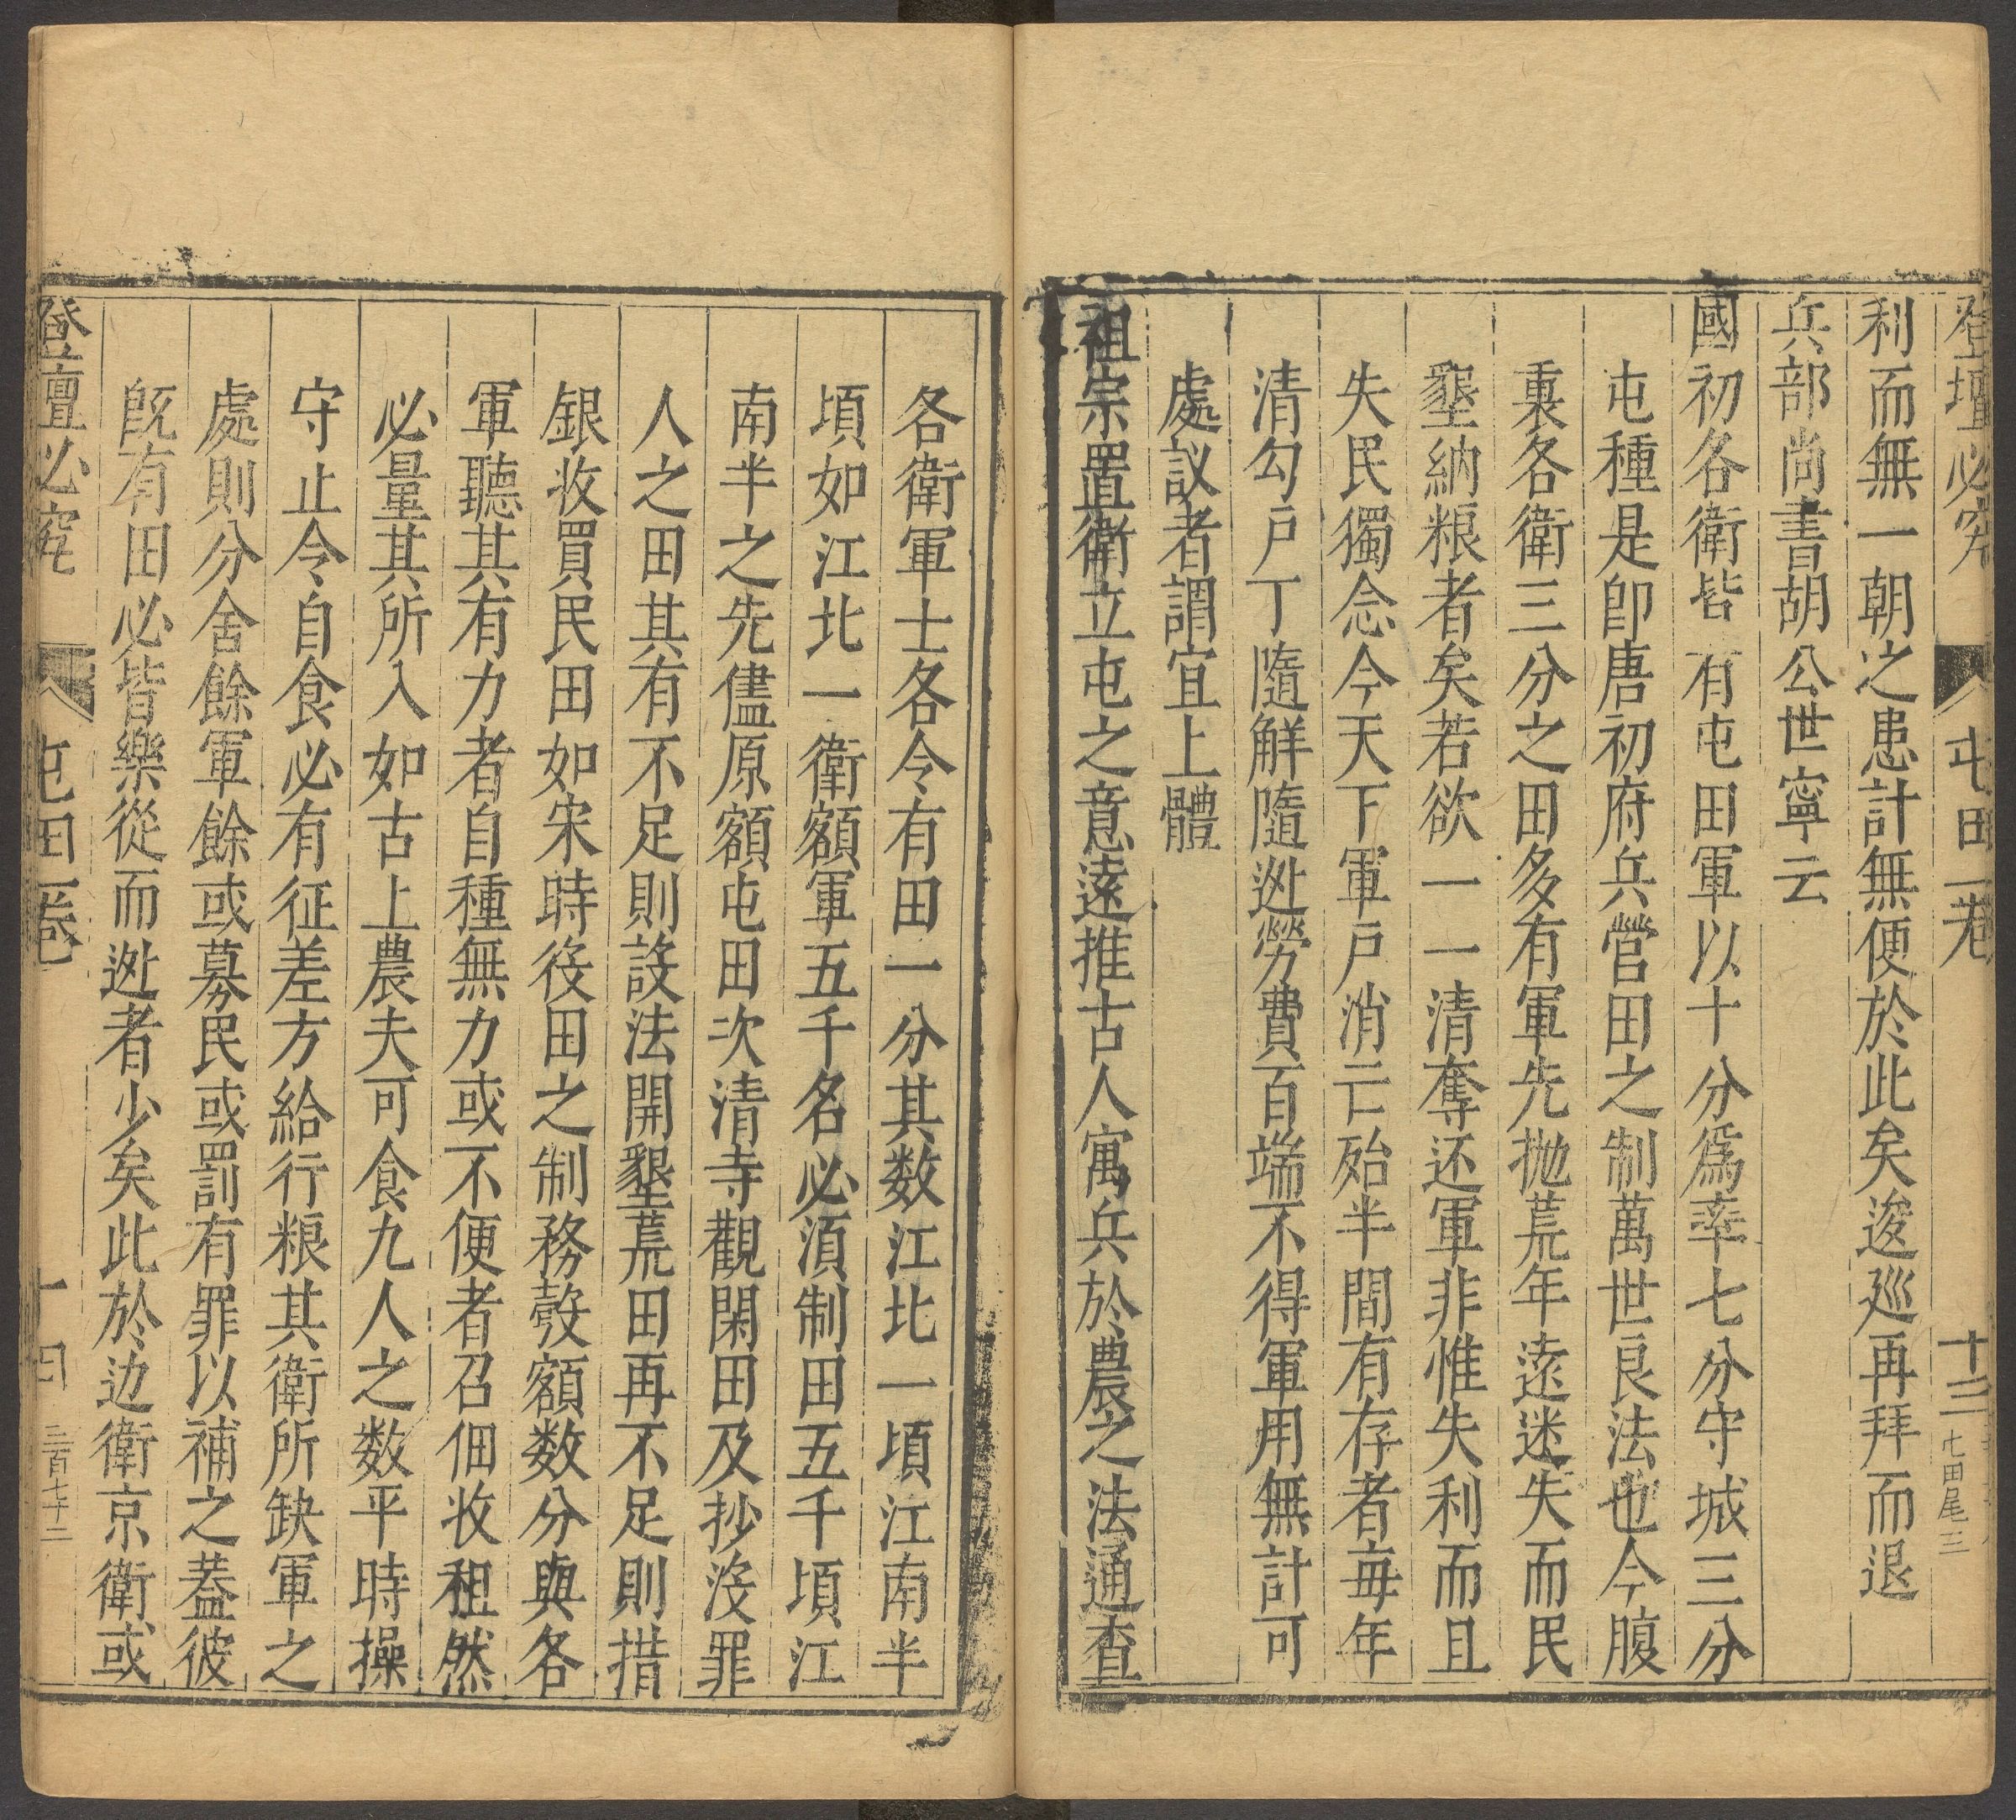 登壇必究 屯田一卷 十三 七田尾三
利而無一朝之患計無便於此矣逡廵再拜而退
兵部尚書胡公世寧云
國初各衛皆有屯田軍以十分爲率七分守城三分
屯種是卽唐初府兵營田之制萬世良法也今腹
裏各衛三分之田多有軍先抛荒年遠迷失而民
墾納粮者矣若欲一一清奪还軍非惟失利而且
失民獨念今天下軍戶消亡殆半間有存者每年
清勾戶丁隨解隨迯勞費百端不得軍用無計可
處議者謂宜上體
祖宗置衛立屯之意遠推古人寓兵於農之法通查
各衛軍士各令有田一分其数江北一頃江南半
頃如江北一衛額軍五千名必湏制田五千頃江
南半之先儘原額屯田次清寺觀閑田及抄没罪
人之田其有不足則設法開墾荒田再不足則措
銀收買民田如宋時役田之制務彀額数分與各
軍聽其有力者自種無力或不便者召佃收租然
必量其所入如古上農夫可食九人之数平時操
守止令自食必有征差方給行粮其衛所缺軍之
處則分舍餘軍餘或募民或罰有罪以補之蓋彼
既有田必皆樂從而迯者少矣此於边衛京衛或
登壇必究 屯田一卷 十四 三百七十二